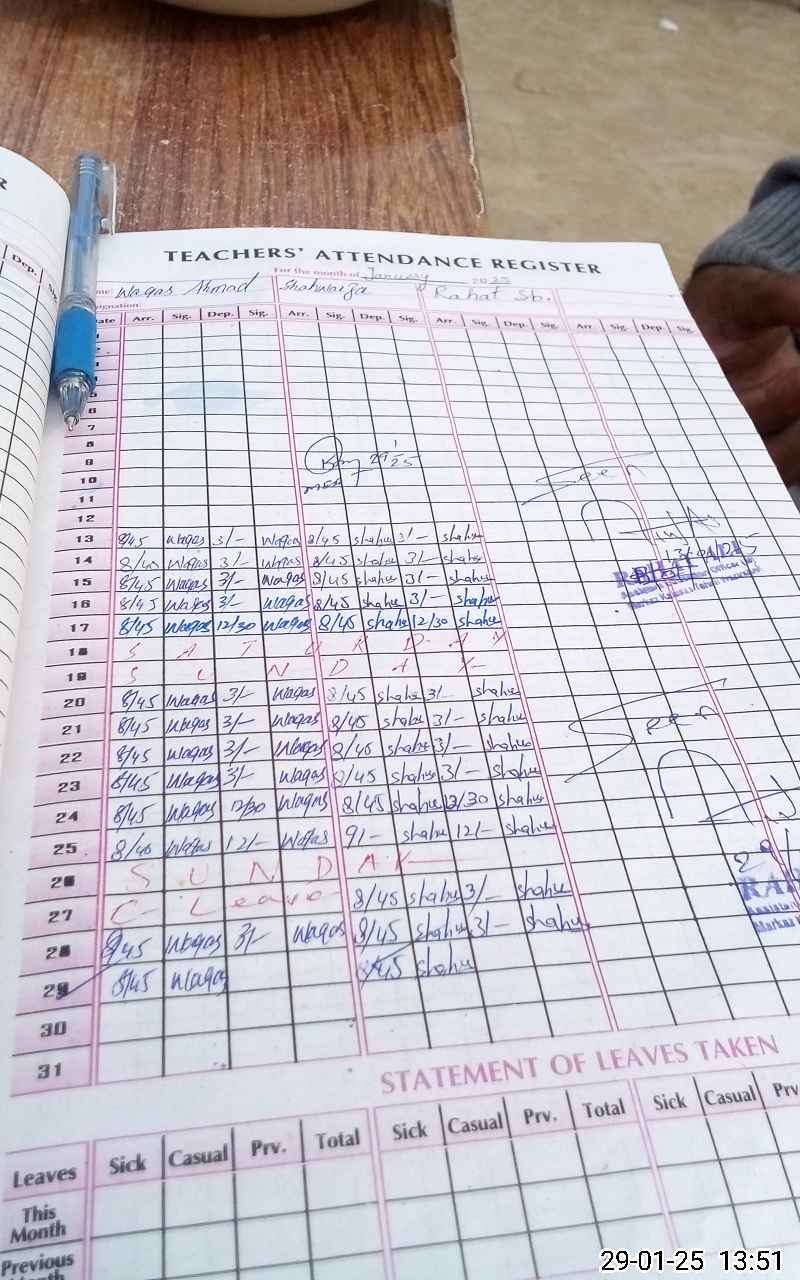 TEACHERS' ATTENDANCE REGISTER
For the month of January 2025
Waqas Ahmad Shahwaiza Rahat Sb.
Dep.
Arr. Sig. Dep. Sig. Arr. Sig. Dep. Sig. Arr. Sig. Dep. Sig. Arr. Sig. Dep Sig.
6
7
8
9 29/1/25
10 Seen
11
12
13 8/45 Waqas 3/- Waqas 8/45 shahu 3/- shahu
14 8/40 Waqas 3/- Waqas 8/45 shahu 3/- shahu
15 8/45 Waqas 3/- Waqas 8/45 shahu 3/- shahu
16 8/45 Waqas 3/- Waqas 8/45 shahu 3/- shahu
17 8/45 Waqas 12/30 Waqas 8/45 shahu 12/30 shahu
18 S A T U R D A Y
19 S U N D A Y
20 8/45 Waqas 3/- Waqas 8/45 shahu 3/- shahu
21 8/45 Waqas 3/- Waqas 8/45 shahu 3/- shahu Seen
22 8/45 Waqas 3/- Waqas 8/40 shahu 3/- shahu
23 8/45 Waqas 3/- Waqas 8/45 shahu 3/- shahu
24 8/45 Waqas 12/30 Waqas 8/45 shahu 12/30 shahu
25 8/40 Waqas 12/- Waqas 9/- shahu 12/- shahu
26 S U N D A Y
27 C- Leave 8/45 shahu 3/- shahu
28 8/45 Waqas 3/- Waqas 8/45 shahu 3/- shahu
29 8/45 Waqas 8/45 shahu
30
31
STATEMENT OF LEAVES TAKEN
Leaves Sick Casual Prv. Total Sick Casual Prv. Total Sick Casual
This Month
Previous
29-01-25 13:51